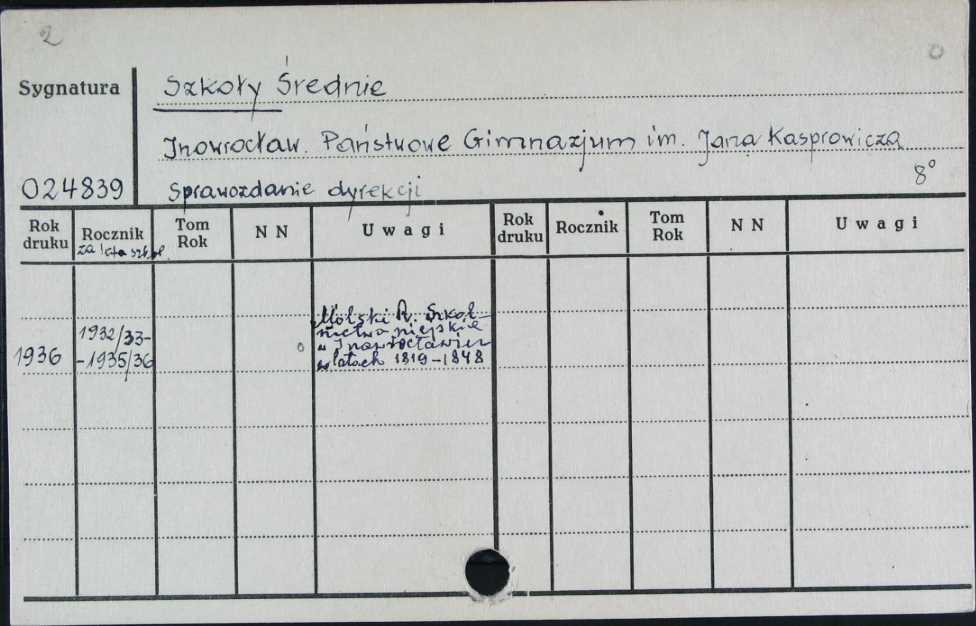 2
o
Sygnatura
Szkoły Średnie
Inowrocław. Państwowe Gimnazjum im. Jana Kasprowicza
024839
Sprawozdanie dyrekcji
8°
Rok druku
Rocznik
za lata szkol.
Tom Rok
N N
Uwagi
Rok druku
Rocznik
Tom Rok
N N
Uwagi
1936
1932/33-
-1935/36
o
Molski R. Szkol-
nictwo miejskie
w Inowrocławiu
w latach 1819-1848